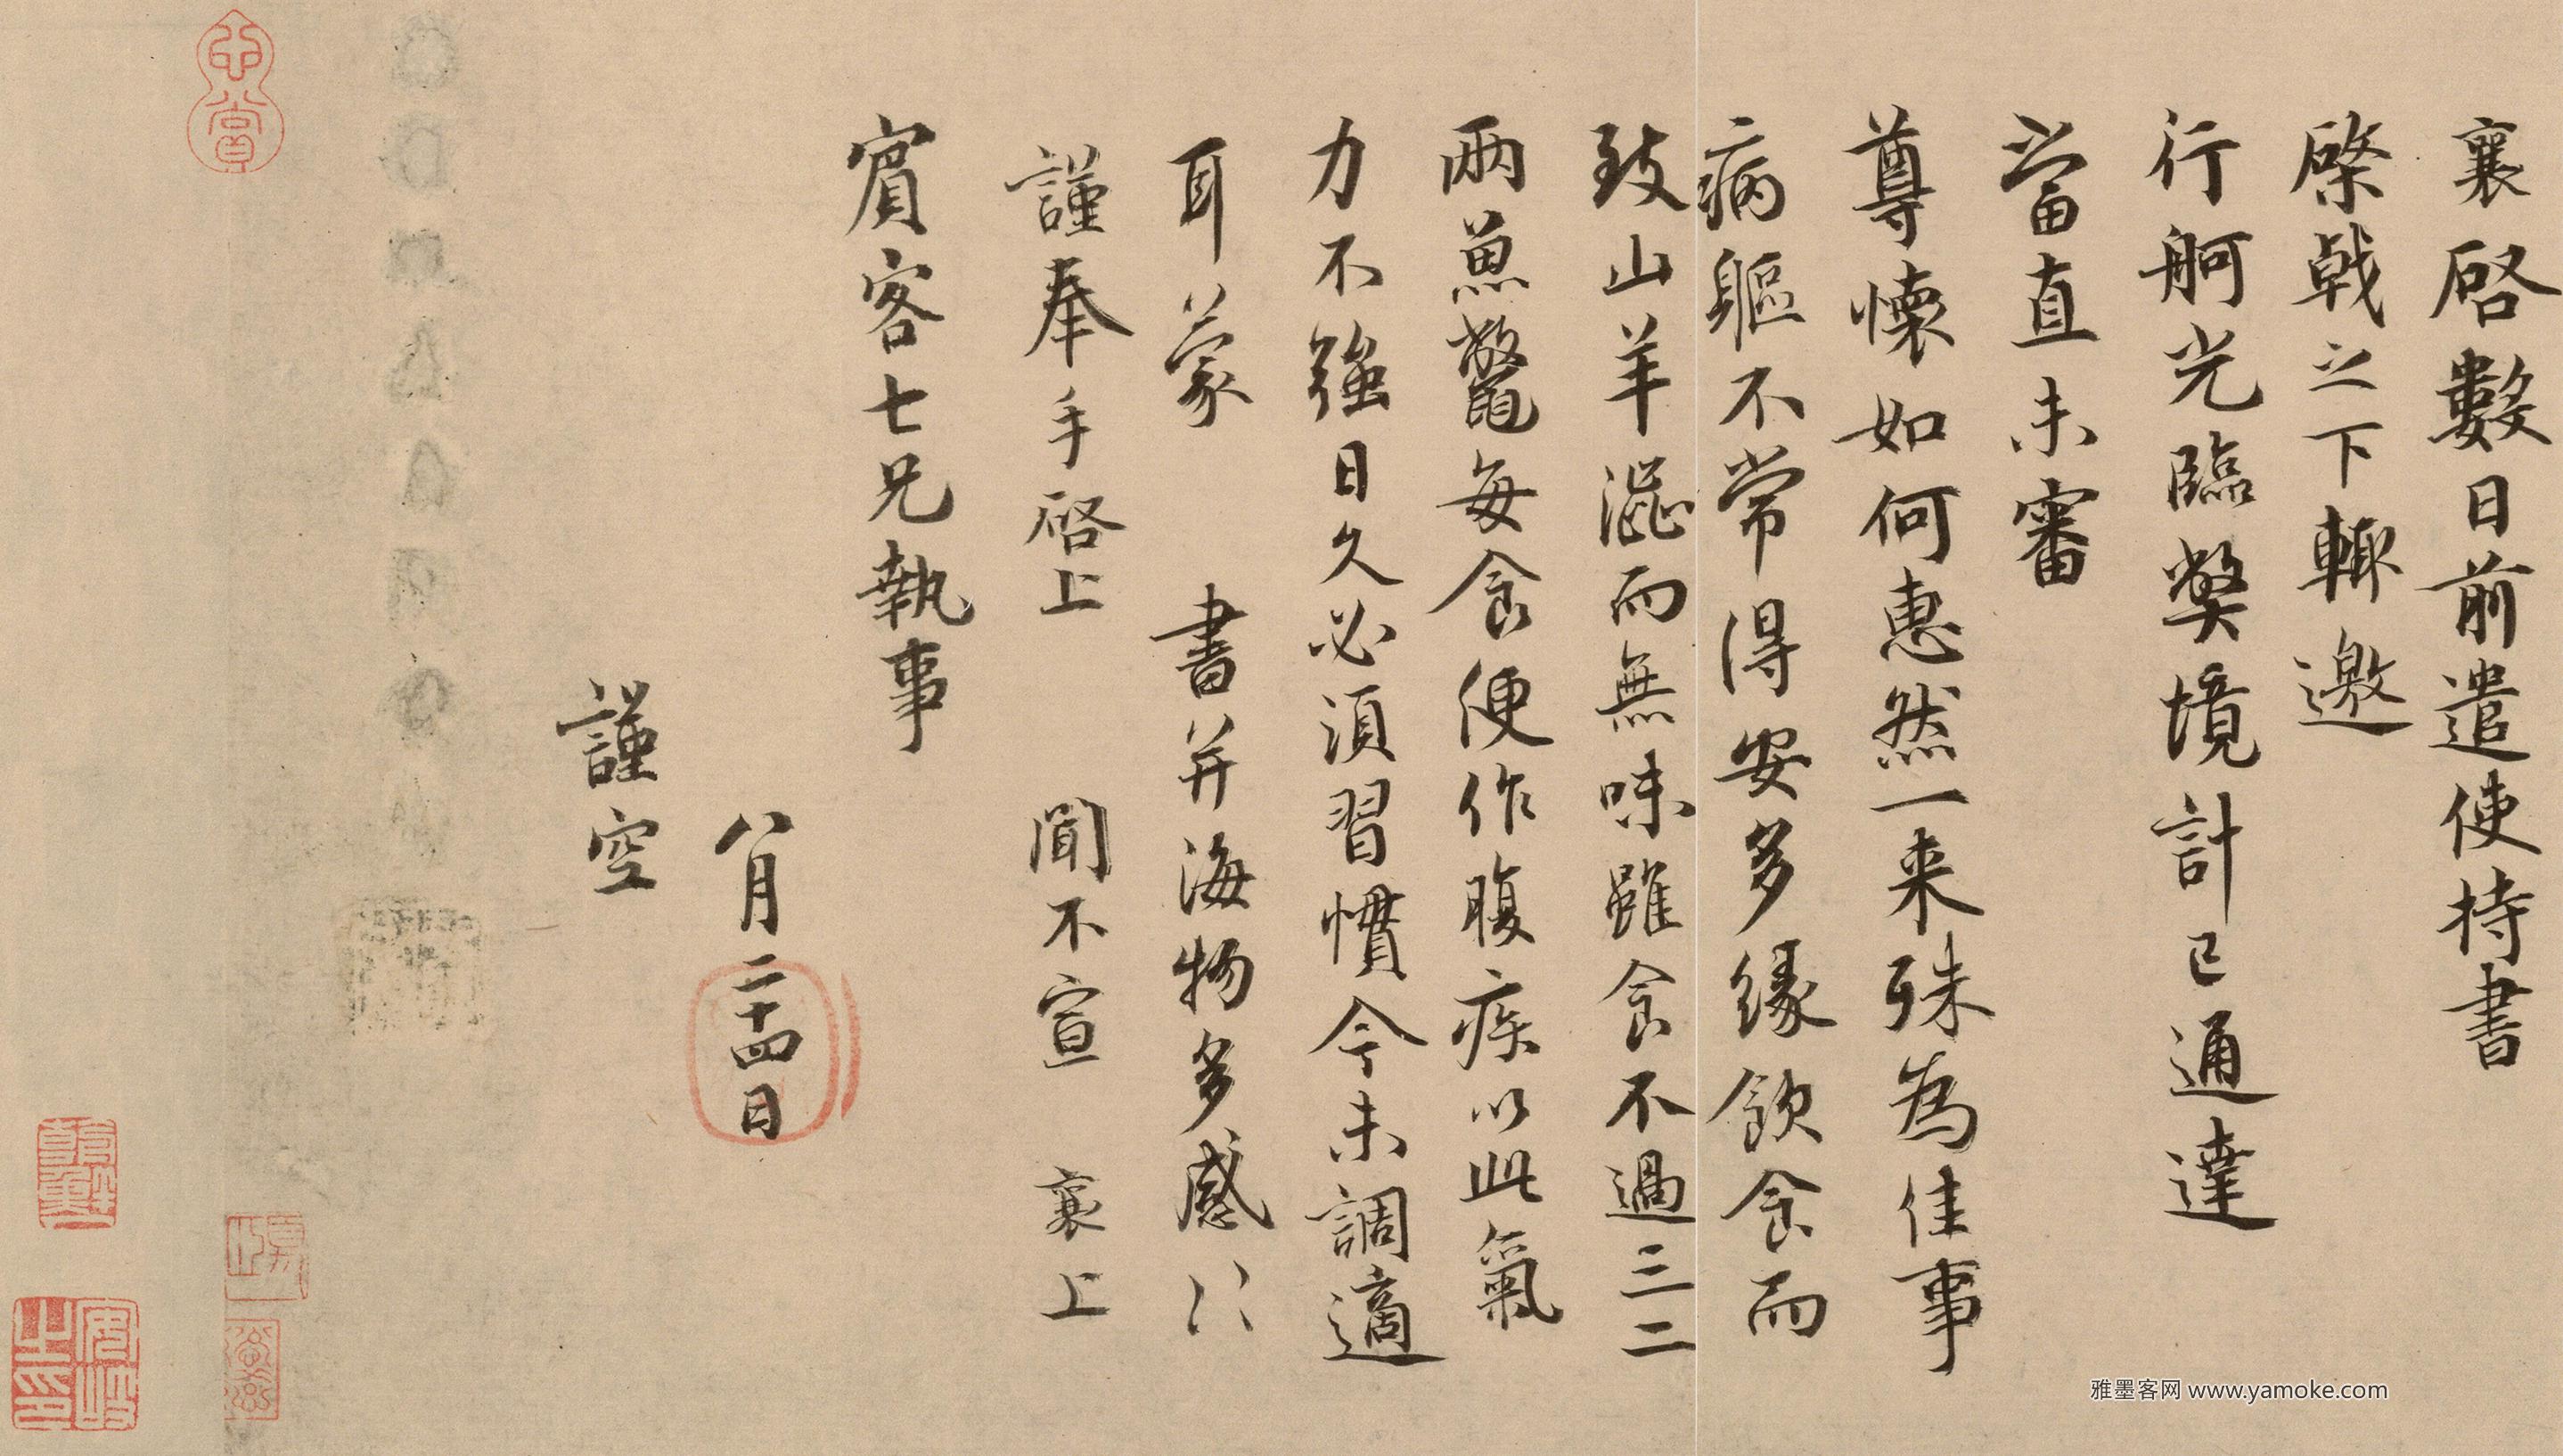 襄啓數日前遣使持書
棨戟之下輙邀
行舸光臨弊境計已通達
當直未審
尊懷如何惠然一来殊為佳事
病軀不常得安多緣飲食而
致山羊澀而無味雖食不過三二
兩魚鼈每食便作腹疾以此氣
力不強日久必須習慣今未調適
耳蒙 書并海物多感〻
謹奉手啓上 聞不宣 襄上
賓客七兄執事
八月二十四日
謹空
雅墨客网 www.yamoke.com